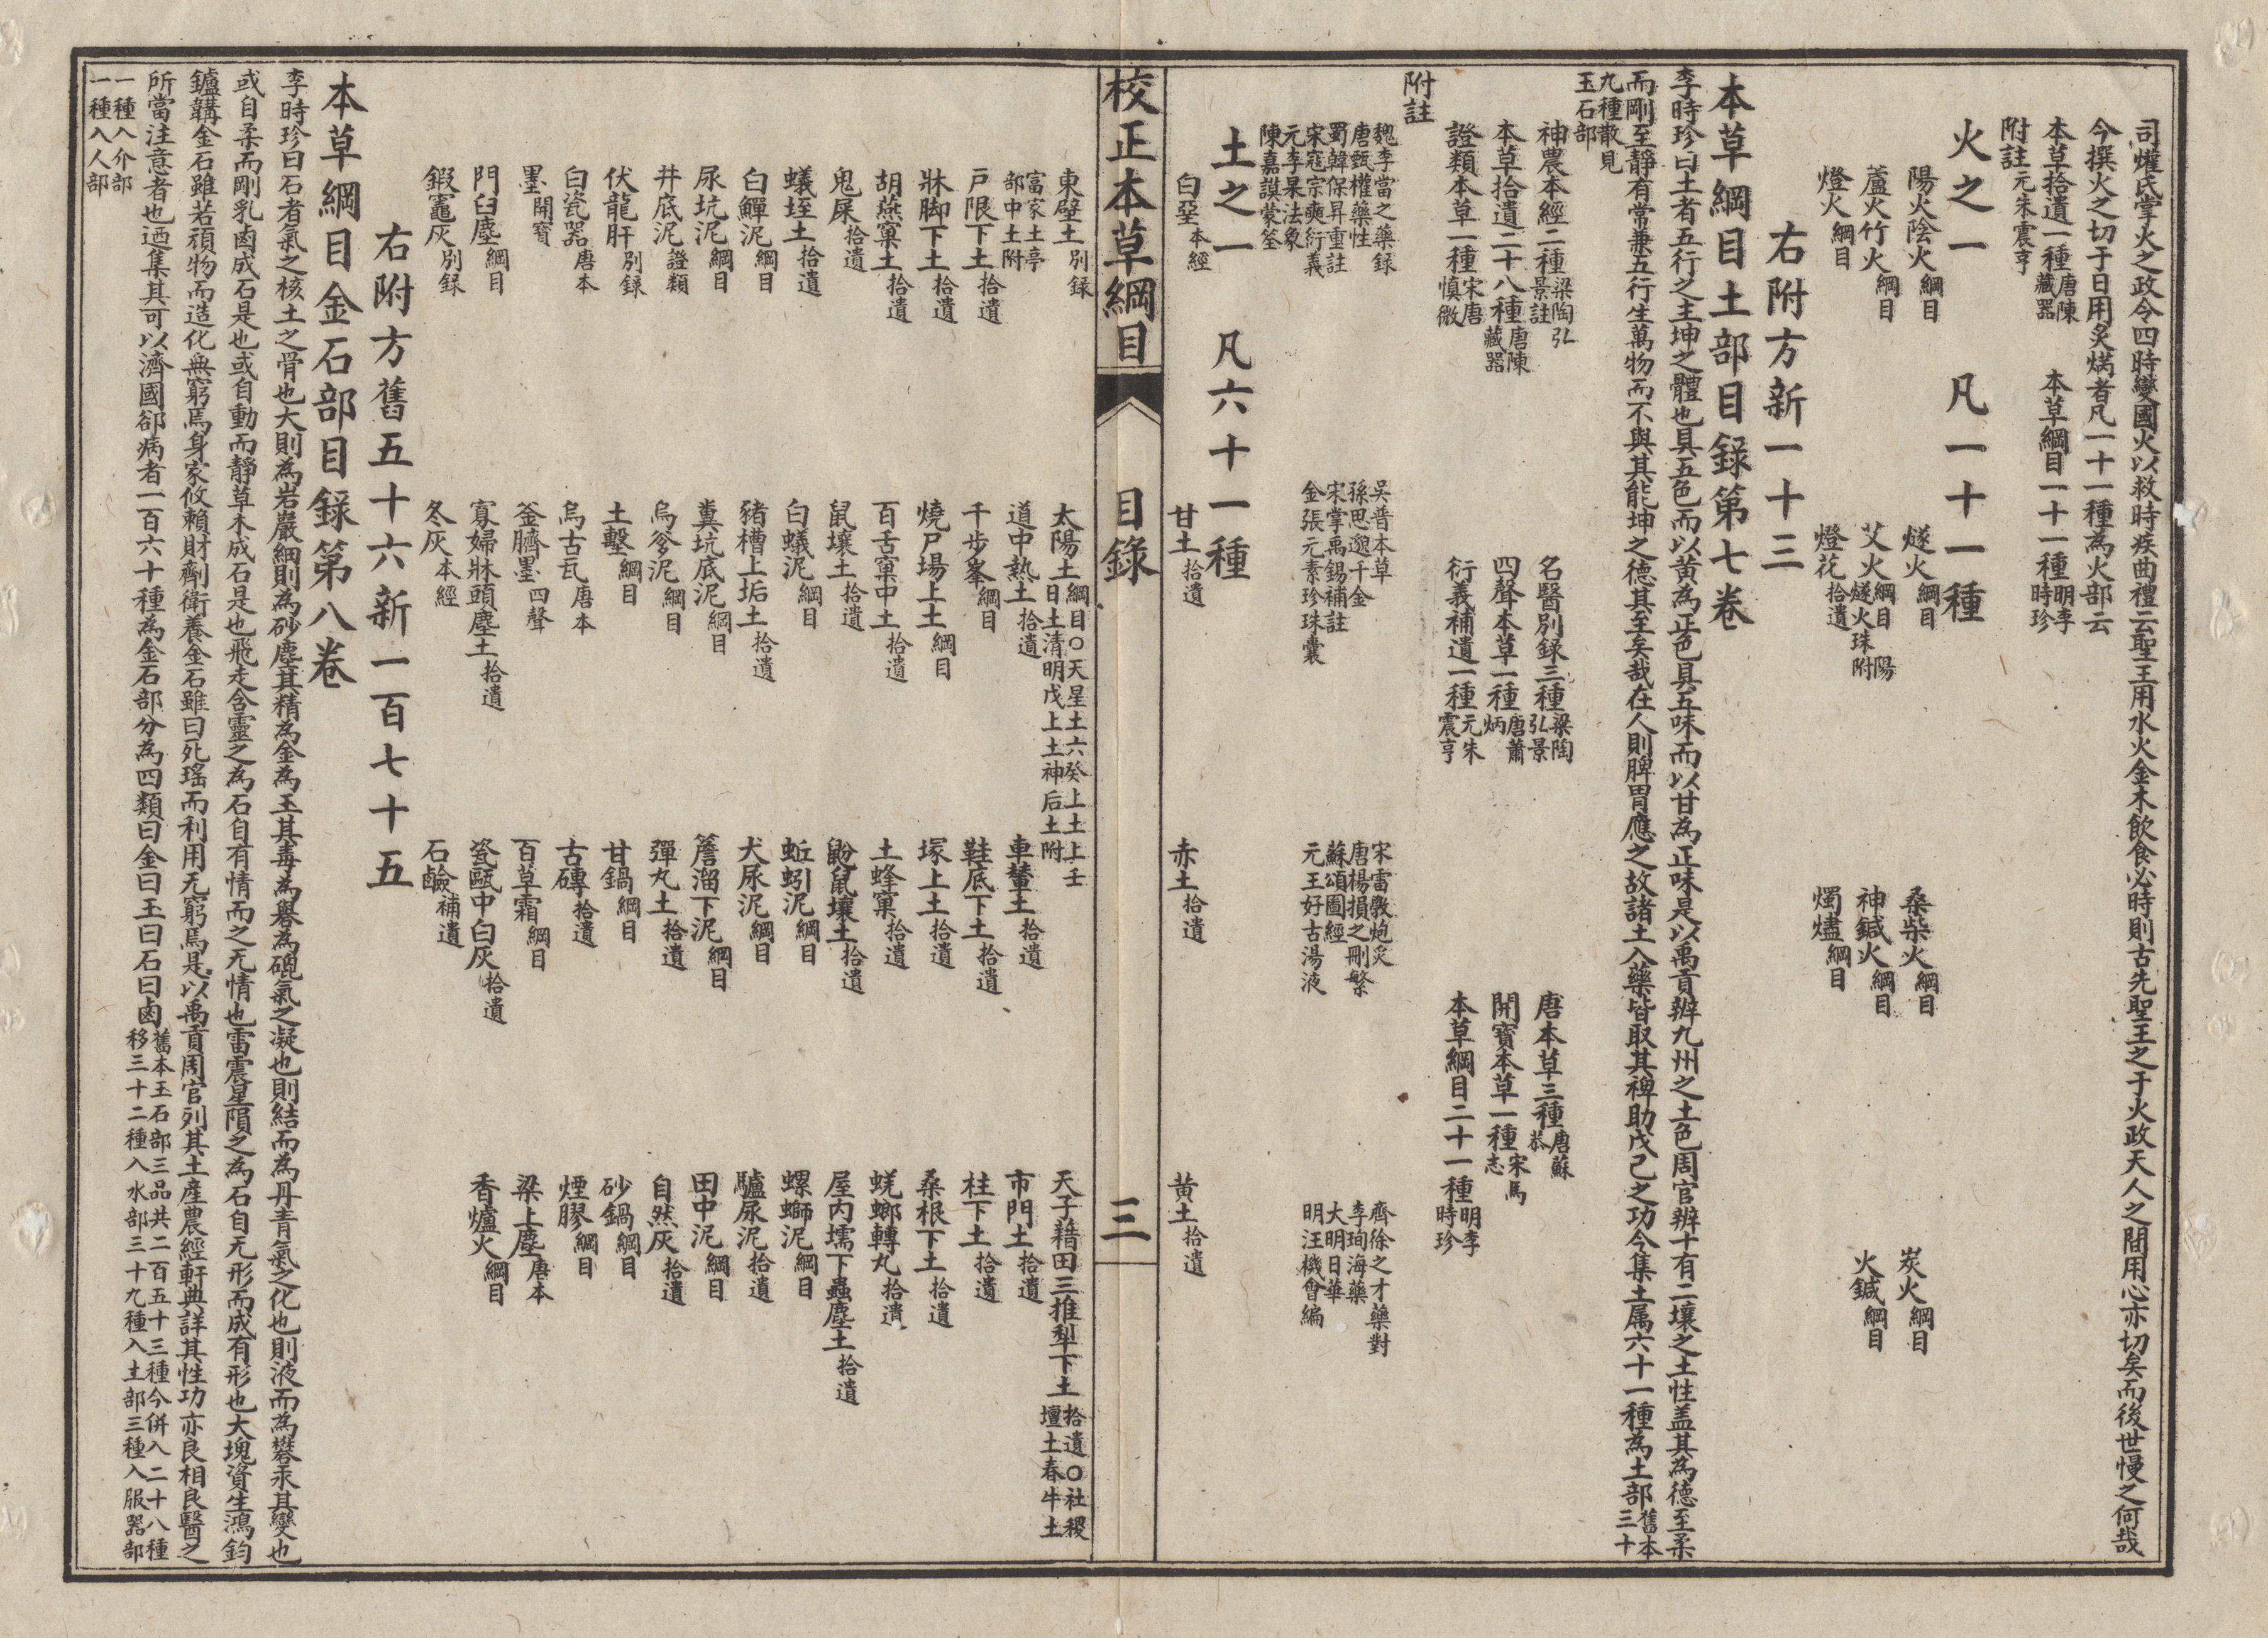 司爟氏掌火之政令四時變國火以救時疾曲禮云聖王用水火金木飲食必時則古先聖王之于火政天人之間用心亦切矣而後世慢之何哉
今撰火之切于日用炙焫者凡一十一種為火部云
本草拾遺一種唐陳藏器 本草綱目一十一種明李時珍
附註元朱震亨
火之一 凡一十一種
陽火陰火綱目 燧火綱目 桑柴火綱目 炭火綱目
蘆火竹火綱目 艾火綱目陽燧火珠附 神鍼火綱目 火鍼綱目
燈火綱目 燈花拾遺 燭燼綱目
右附方新一十三
本草綱目土部目錄第七卷
李時珍曰土者五行之主坤之體也具五色而以黃為正色具五味而以甘為正味是以禹貢辨九州之土色周官辨十有二壤之土性盖其為德至柔
而剛至靜有常兼五行生萬物而不與其能坤之德其至矣哉在人則脾胃應之故諸土入藥皆取其裨助戊己之功今集土属六十一種為土部舊本三十
九種散見玉石部
神農本經二種梁陶弘景註 名醫別録三種梁陶弘景 唐本草三種唐蘇恭
本草拾遺二十八種唐陳藏器 四聲本草一種唐蕭炳 開寶本草一種宋馬志
證類本草一種宋唐慎微 衍義補遺一種元朱震亨 本草綱目二十一種明李時珍
附註
魏李當之藥録 吳普本草 宋雷斅炮炙 齊徐之才藥對
唐甄權藥性 孫思邈千金 唐楊損之刪繁 李珣海藥
蜀韓保昇重註 宋掌禹錫補註 蘇頌圖經 大明日華
宋寇宗奭衍義 金張元素珍珠囊 元王好古湯液 明汪機會編
元李杲法象
陳嘉謨蒙筌
土之一 凡六十一種
白堊本經 甘土拾遺 赤土拾遺 黃土拾遺
校正本草綱目 目錄 三
東壁土別録 太陽土綱目○天星土六癸上土上壬日土清明戊上土神后土附 天子藉田三推犁下土拾遺○社稷壇土春牛土
富家土亭部中土附 道中熱土拾遺 車輦土拾遺 市門土拾遺
戸限下土拾遺 千步峯綱目 鞋底下土拾遺 柱下土拾遺
牀脚下土拾遺 燒尸場上土綱目 塚上土拾遺 桑根下土拾遺
胡燕窠土拾遺 百舌窠中土拾遺 土蜂窠拾遺 蜣蜋轉丸拾遺
鬼屎拾遺 鼠壤土拾遺 鼢鼠壤土拾遺 屋内壖下蟲塵土拾遺
蟻垤土拾遺 白蟻泥綱目 蚯蚓泥綱目 螺螄泥綱目
白鱓泥綱目 豬槽上垢土拾遺 犬尿泥綱目 驢尿泥拾遺
尿坑泥綱目 糞坑底泥綱目 簷溜下泥綱目 田中泥綱目
井底泥證類 烏爹泥綱目 彈丸土拾遺 自然灰拾遺
伏龍肝別録 土墼綱目 甘鍋綱目 砂鍋綱目
白瓷器唐本 烏古瓦唐本 古磚拾遺 煙膠綱目
墨開寶 釜臍墨四聲 百草霜綱目 梁上塵唐本
門臼塵綱目 寡婦牀頭塵土拾遺 瓷甌中白灰拾遺 香爐灰綱目
鍛竈灰別録 冬灰本經 石鹼補遺
右附方舊五十六新一百七十五
本草綱目金石部目錄第八卷
李時珍曰石者氣之核土之骨也大則為岩巖細則為砂塵其精為金為玉其毒為礜為砒氣之凝也則結而為丹青氣之化也則液而為礬汞其變也
或自柔而剛乳鹵成石是也或自動而靜草木成石是也飛走含靈之為石自有情而之无情也雷震星隕之為石自无形而成有形也大塊資生鴻鈞
鑪鞲金石雖若頑物而造化無窮焉身家攸賴財劑衛養金石雖曰死瑤而利用无窮焉是以禹貢周官列其土產農經軒典詳其性功亦良相良醫之
所當注意者也迺集其可以濟國卻病者一百六十種為金石部分為四類曰金曰玉曰石曰鹵舊本玉石部三品共二百五十三種今併入二十八種移三十二種入水部三十九種入土部三種入服器部
一種入介部一種入人部